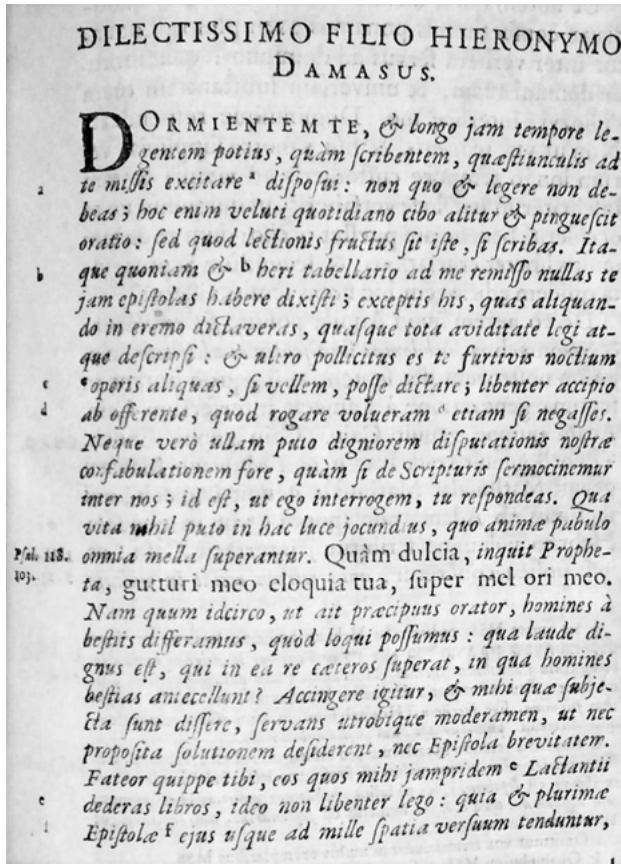 DILECTISSIMO FILIO HIERONYMO
DAMASUS.
DORMIENTEM TE, & longo jam tempore le-
gentem potius, quàm ſcribentem, quæſtiunculis ad
a te miſſis excitare ª diſpoſui: non quo & legere non de-
beas; hoc enim veluti quotidiano cibo alitur & pingueſcit
oratio: ſed quod lectionis fructus ſit iſte, ſi ſcribas. Ita-
b que quoniam & b heri tabellario ad me remiſſo nullas te
jam epiſtolas habere dixiſti; exceptis his, quas aliquan-
do in eremo dictaveras, quaſque tota aviditate legi at-
que deſcripſi: & ultro pollicitus es te furtivis noctium
c c operis aliquas, ſi vellem, poſſe dictare; libenter accipio
d ab offerente, quod rogare volueram etiam ſi negaſſes.
Neque verò ullam puto digniorem diſputationis noſtræ
confabulationem fore, quàm ſi de Scripturis ſermocinemur
inter nos; id eſt, ut ego interrogem, tu reſpondeas. Qua
vita nihil puto in hac luce jocundius, quo animæ pabulo
Pſal. 118. omnia mella ſuperantur. Quàm dulcia, inquit Prophe-
103. ta, gutturi meo eloquia tua, ſuper mel ori meo.
Nam quum idcirco, ut ait præcipuus orator, homines à
beſtiis differamus, quòd loqui poſſumus: qua laude di-
gnus eſt, qui in ea re cæteros ſuperat, in qua homines
beſtias antecellunt? Accingere igitur, & mihi quæ ſubje-
cta ſunt diſſere, ſervans utrobique moderamen, ut nec
propoſita ſolutionem deſiderent, nec Epiſtola brevitatem.
Fateor quippe tibi, eos quos mihi jampridem e Lactantii
e dederas libros, ideo non libenter lego: quia & plurimæ
Epiſtolæ f ejus uſque ad mille ſpatia verſuum tenduntur,